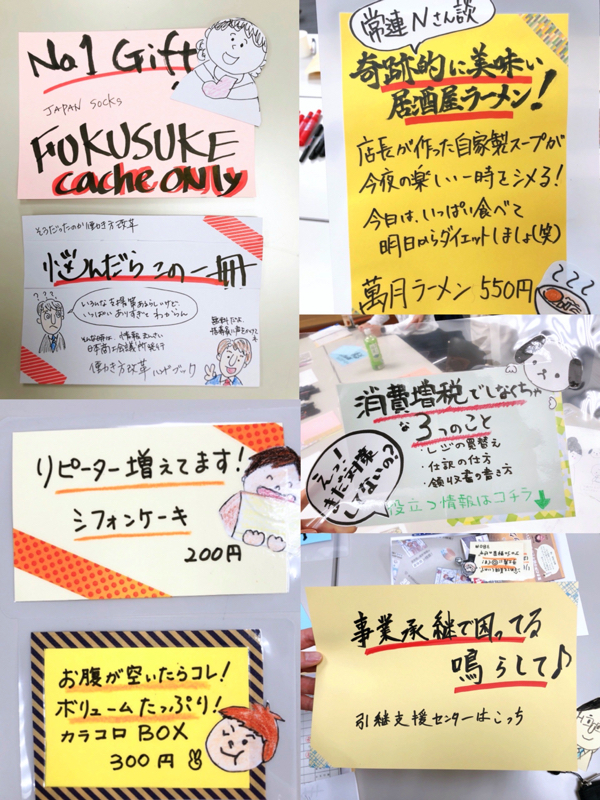 No.1 Gift
JAPAN SOCKS
FUKUSUKE
cache ONLY
そうだったのか働き方改革
悩んだらこの一冊
???
いっぱいありすぎてわからん
そんな時は、情報まんさい
日本商工会議所発行
働き方改革ハンドブック
リピーター増えてます!
シフォンケーキ
200円
お腹が空いたらコレ!
ボリュームたっぷり!
カラコロBOX
300円
常連Nさん談
奇跡的に美味い
居酒屋ラーメン!
店長が作った自家製スープが
今夜の楽しい一時をシメる!
今日は、いっぱい食べて
明日からダイエットしましょ(笑)
萬月ラーメン 550円
消費増税でしなくちゃ
な3つのこと
・レジの買替え
・仕訳の仕方
・領収書の書き方
えっ!
まだ対策
してないの?
役立つ情報はコチラ↓
事業承継で困ってる
鳴らして♪
引継支援センターはこっち